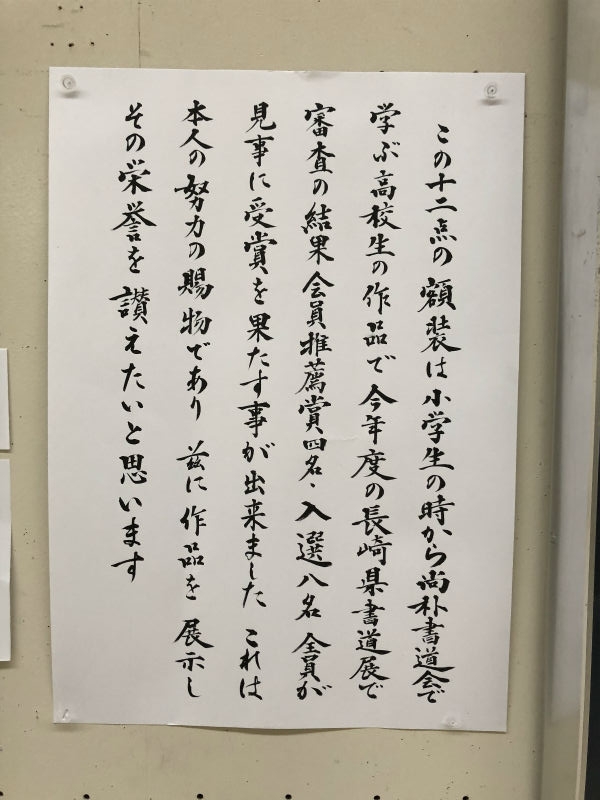 この十二点の額装は小学生の時から尚朴書道会で
学ぶ高校生の作品で今年度の長崎県書道展で
審査の結果会員推薦賞四名・入選八名全員が
見事に受賞を果たす事が出来ました これは
本人の努力の賜物であり 茲に作品を展示し
その栄誉を讃えたいと思います